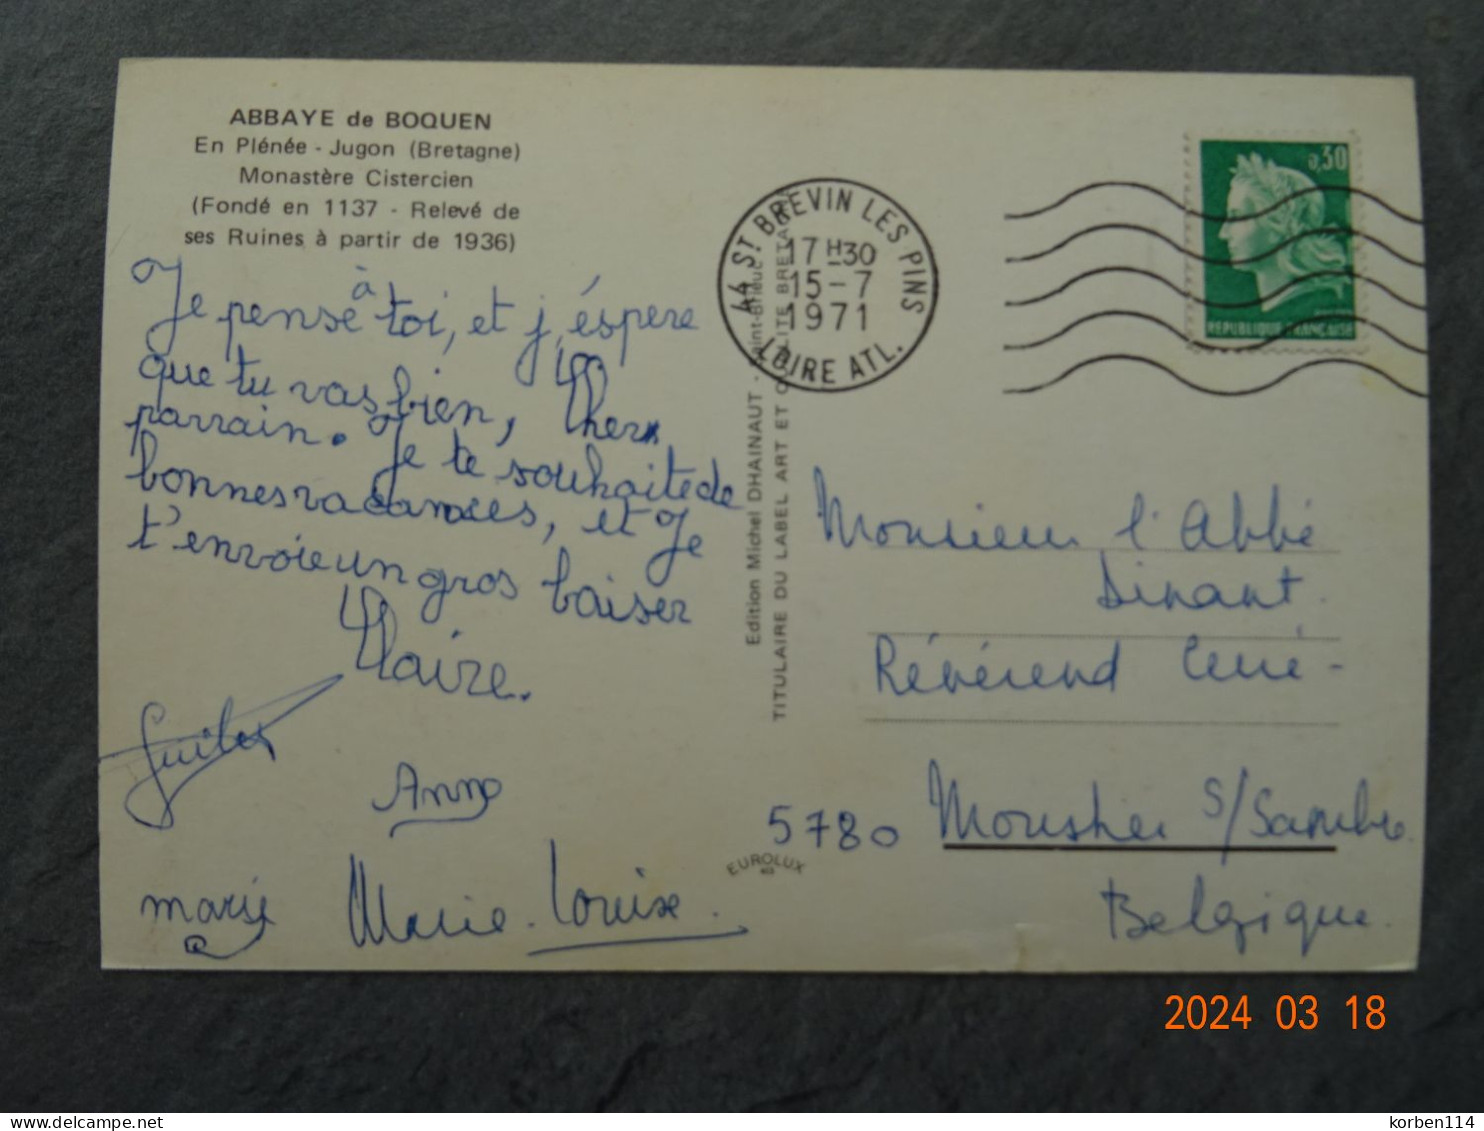 ABBAYE de BOQUEN
En Plénée - Jugon (Bretagne)
Monastère Cistercien
(Fondé en 1137 - Relevé de
ses Ruines à partir de 1936)
Je pense à toi, et j'éspere
que tu vas bien, Cher
parrain. Je te souhaite de
bonnes vacances, et Je
t'envoie un gros baiser
Claire.
Anne
marie
Marie-Louise.
Edition Michel DHAINAUT - Saint-Brieuc
TITULAIRE DU LABEL ART ET QUALITE BRETAGNE
EUROLUX
44 ST BREVIN LES PINS
17 H30
15-7
1971
LOIRE ATL.
0,30
REPUBLIQUE FRANÇAISE
Monsieur l'Abbé
Dinant.
Révérend Curé -
5780 Moustier s/Sambre
Belgique.
2024 03 18
korben114